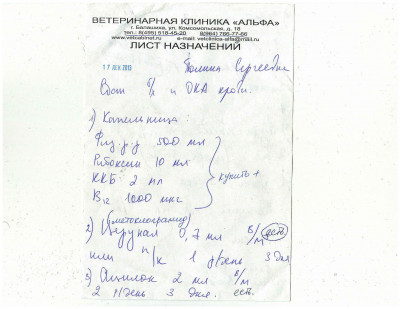 ВЕТЕРИНАРНАЯ КЛИНИКА «АЛЬФА»
г. Балашиха, ул. Комсомольская, д. 18
тел.: 8(495) 518-45-20 8(964) 788-77-66
www.vetcabinet.ru e-mail: vetclinica-alfa@mail.ru
ЛИСТ НАЗНАЧЕНИЙ
17 ДЕК 2013 Полина Сергеевна
б/х и ОКА крови.
1) Капельница:
Физ. р-р 500 мл
Рибоксин 10 мл
ККБ 2 мл
B12 1000 мкг
купить
(метоклопрамид)
2) Церукал 0,7 мл в/м есть
или п/к 1 р/день 3 дня
3) 2 мл в/м
2 р/день 3 дня. есть.